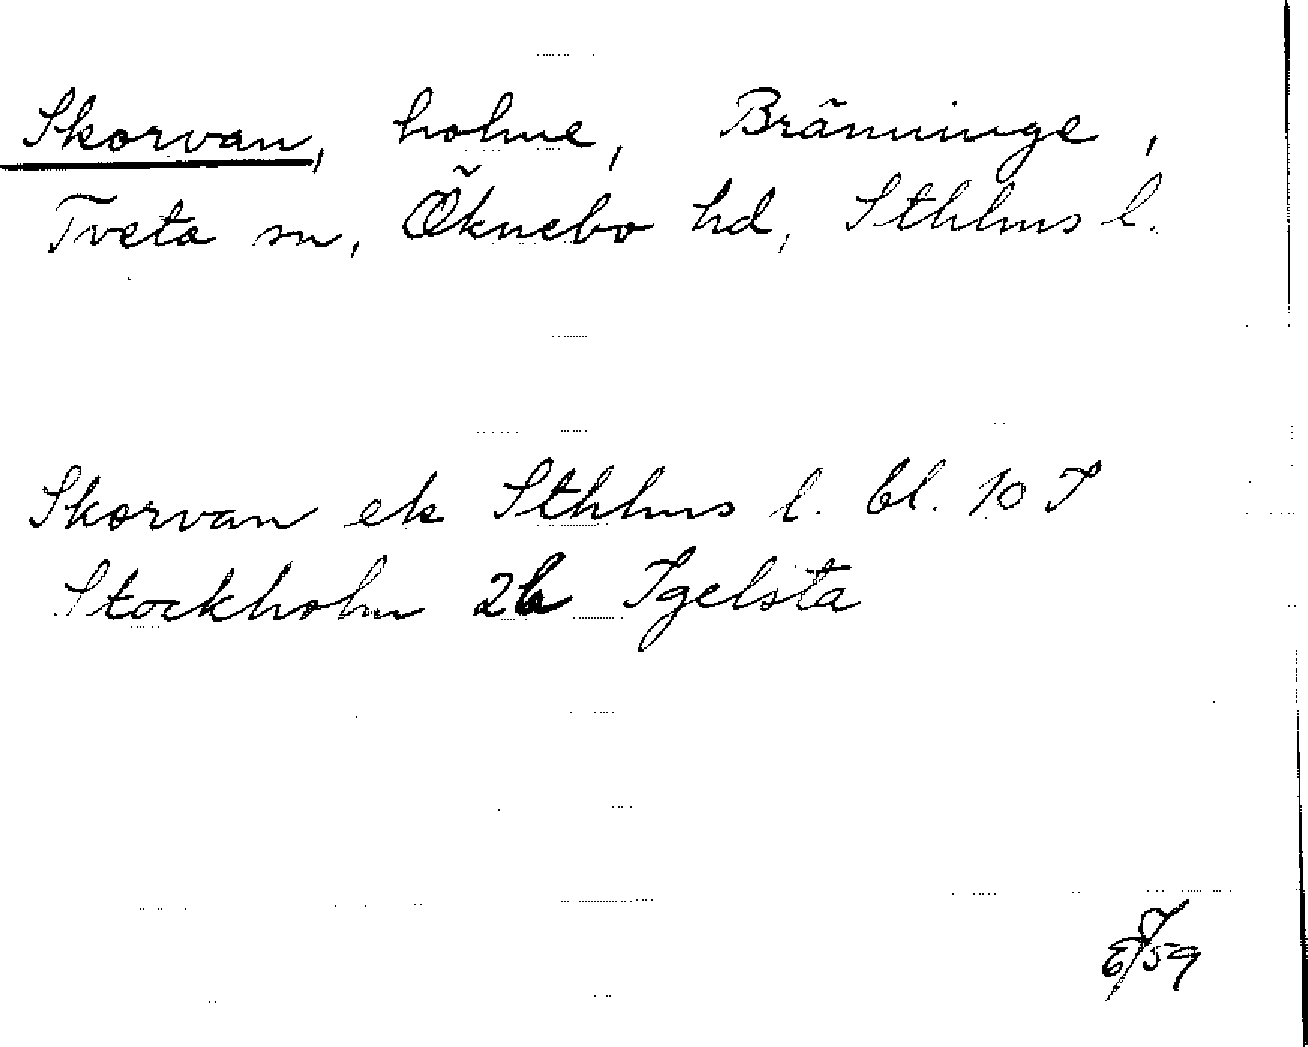 Skorvan, holme, Bränninge,
Tveta sn, Öknebo hd, Sthlms l.
Skorvan ek Sthlms l. bl. 10 I
Stockholm 2b Igelsta
59